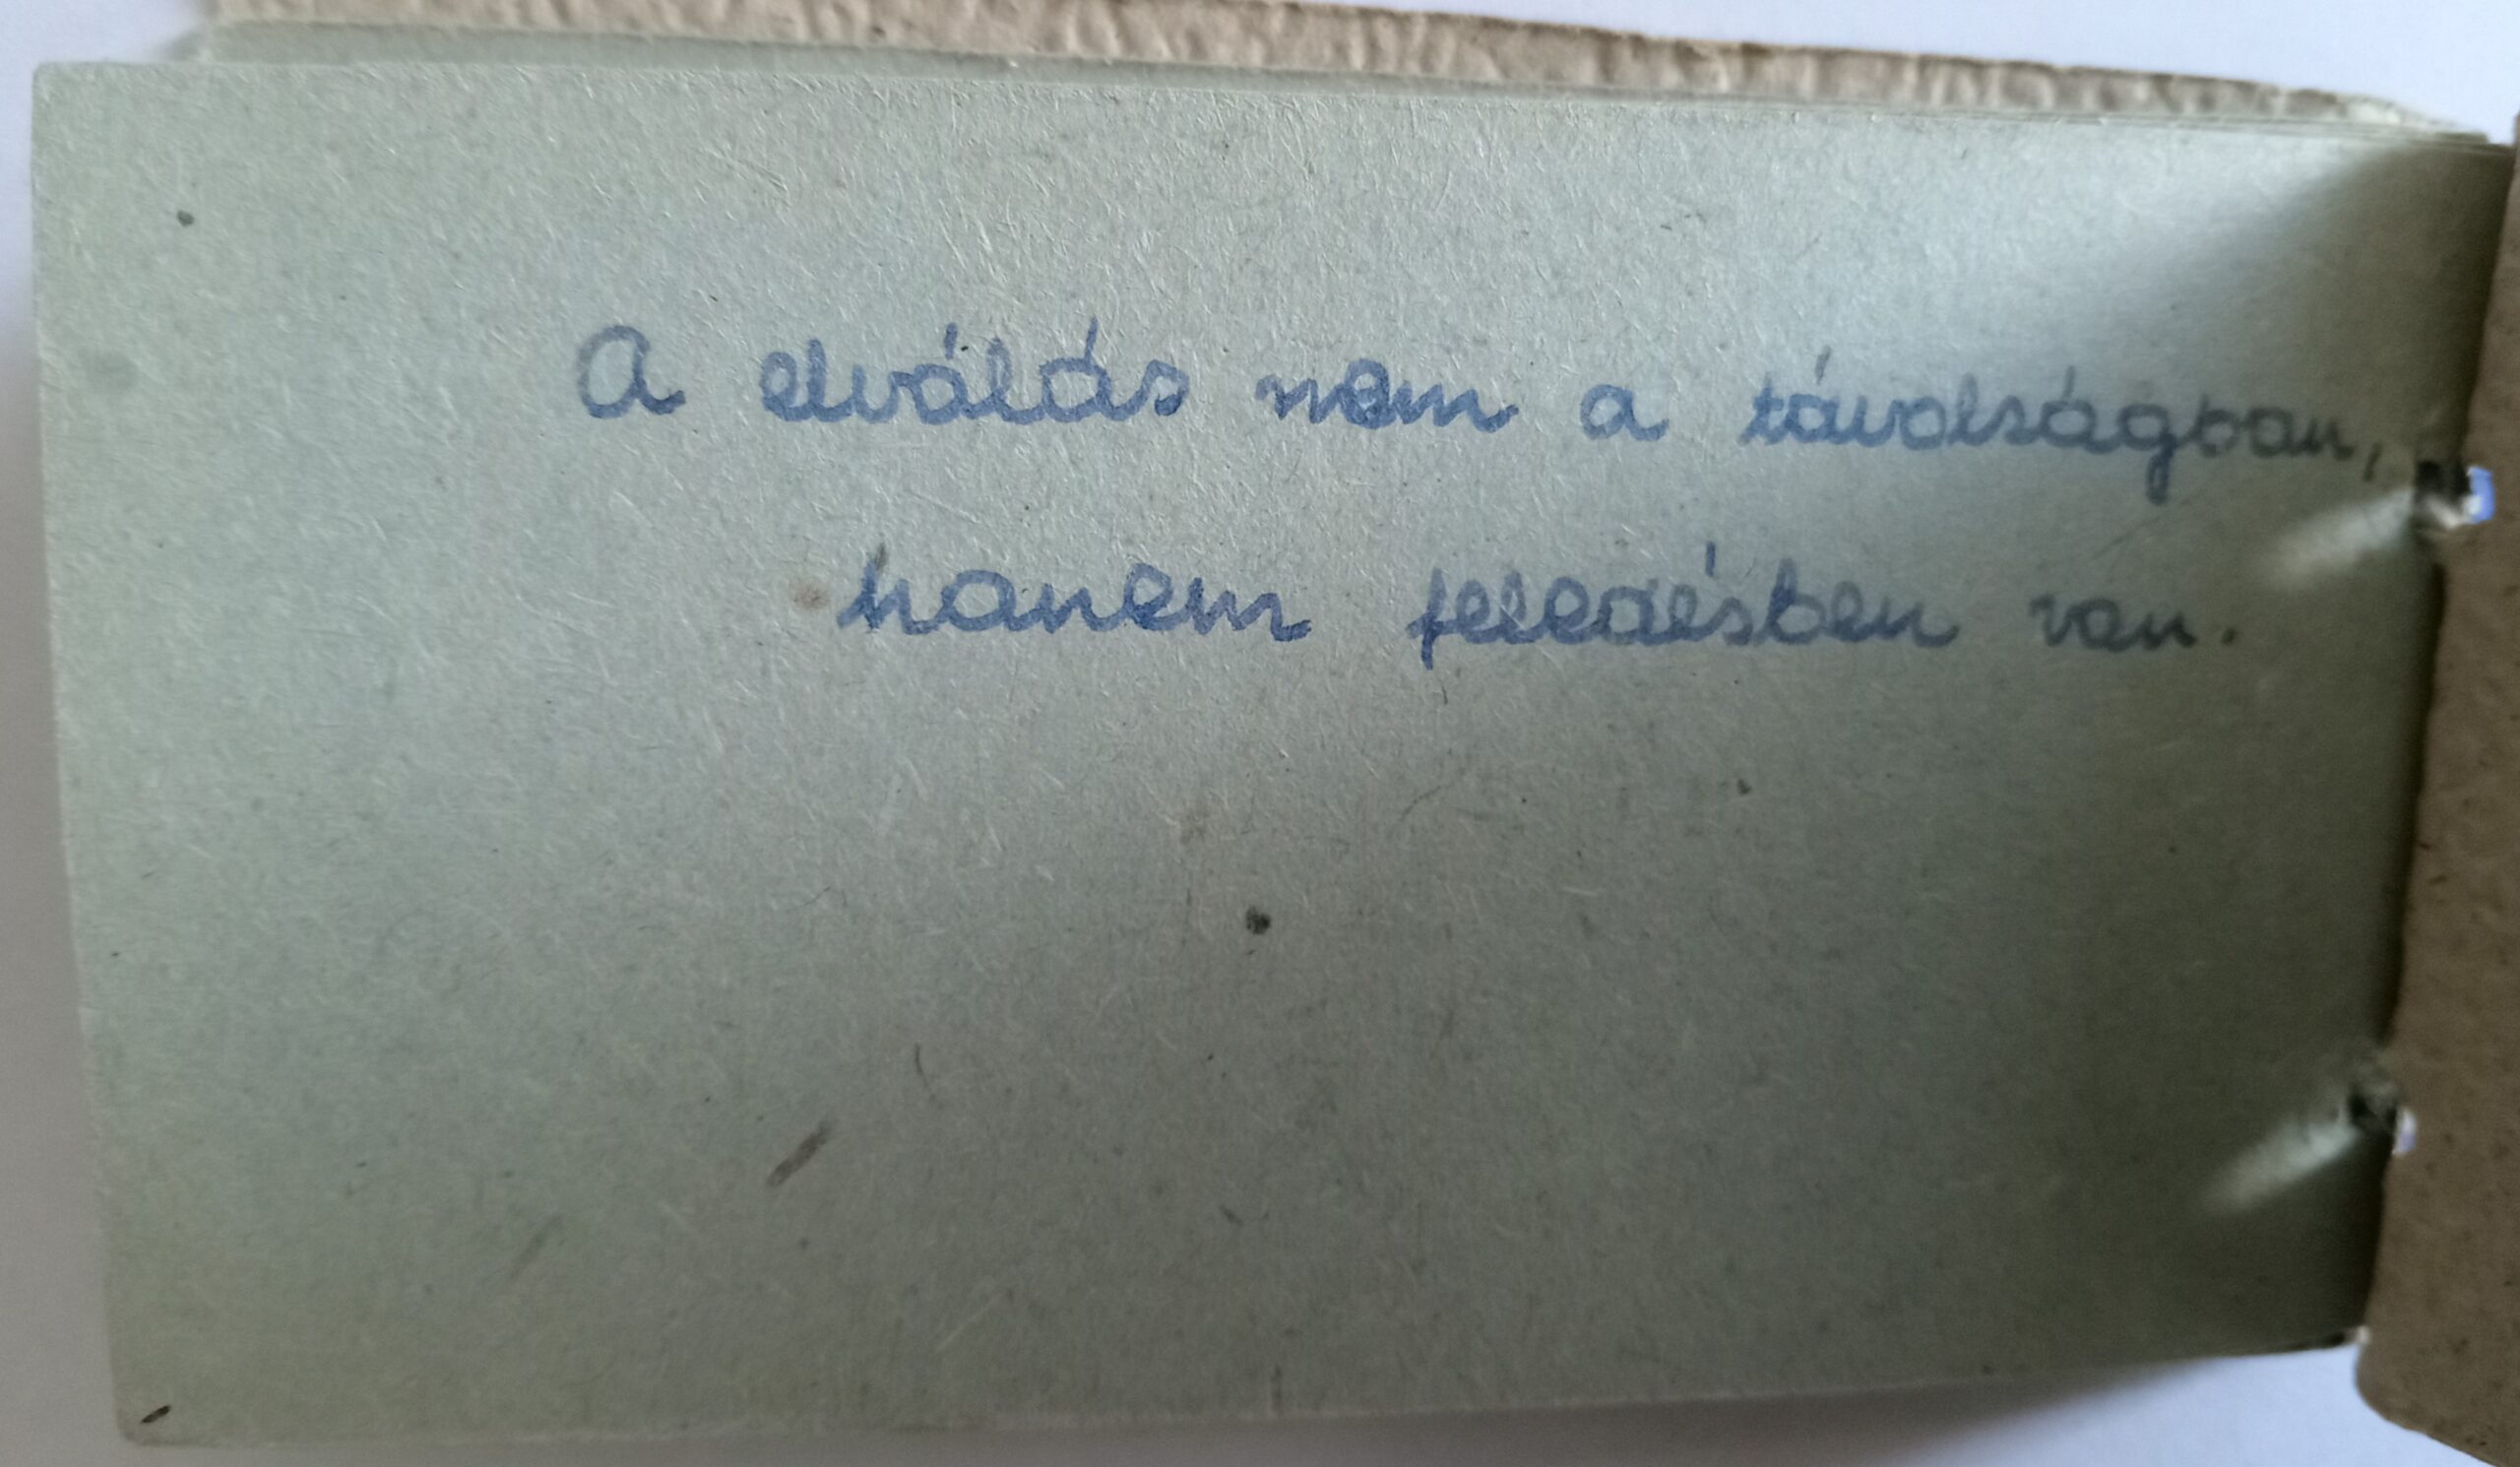 A elválás nem a távolságban,
hanem feledésben van.